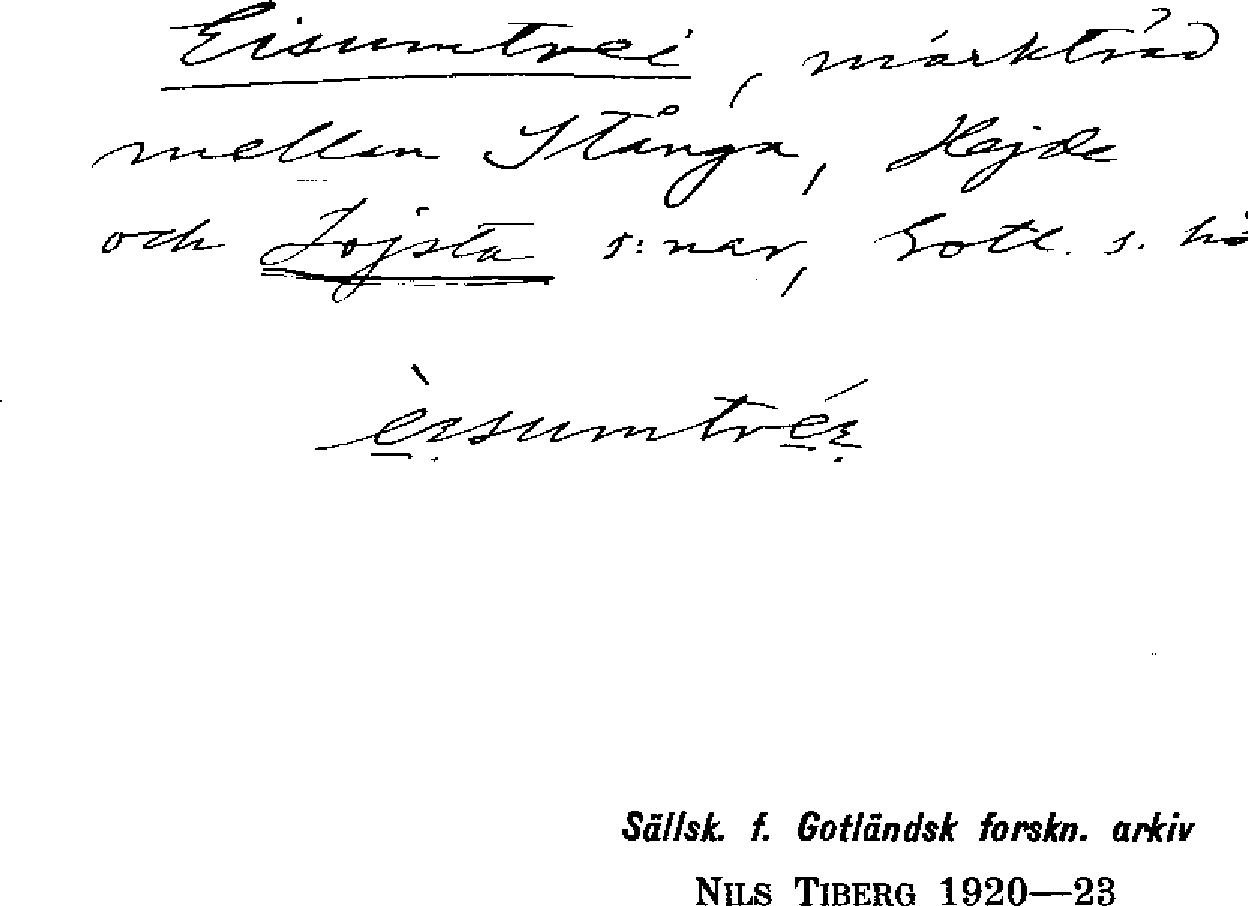 Eisumtrei, märkträd
mellan Stånga, Hejde
och Lojsta s:nar, Gotl. s. hä
Sällsk. f. Gotländsk forskn. arkiv
NILS TIBERG 1920—23